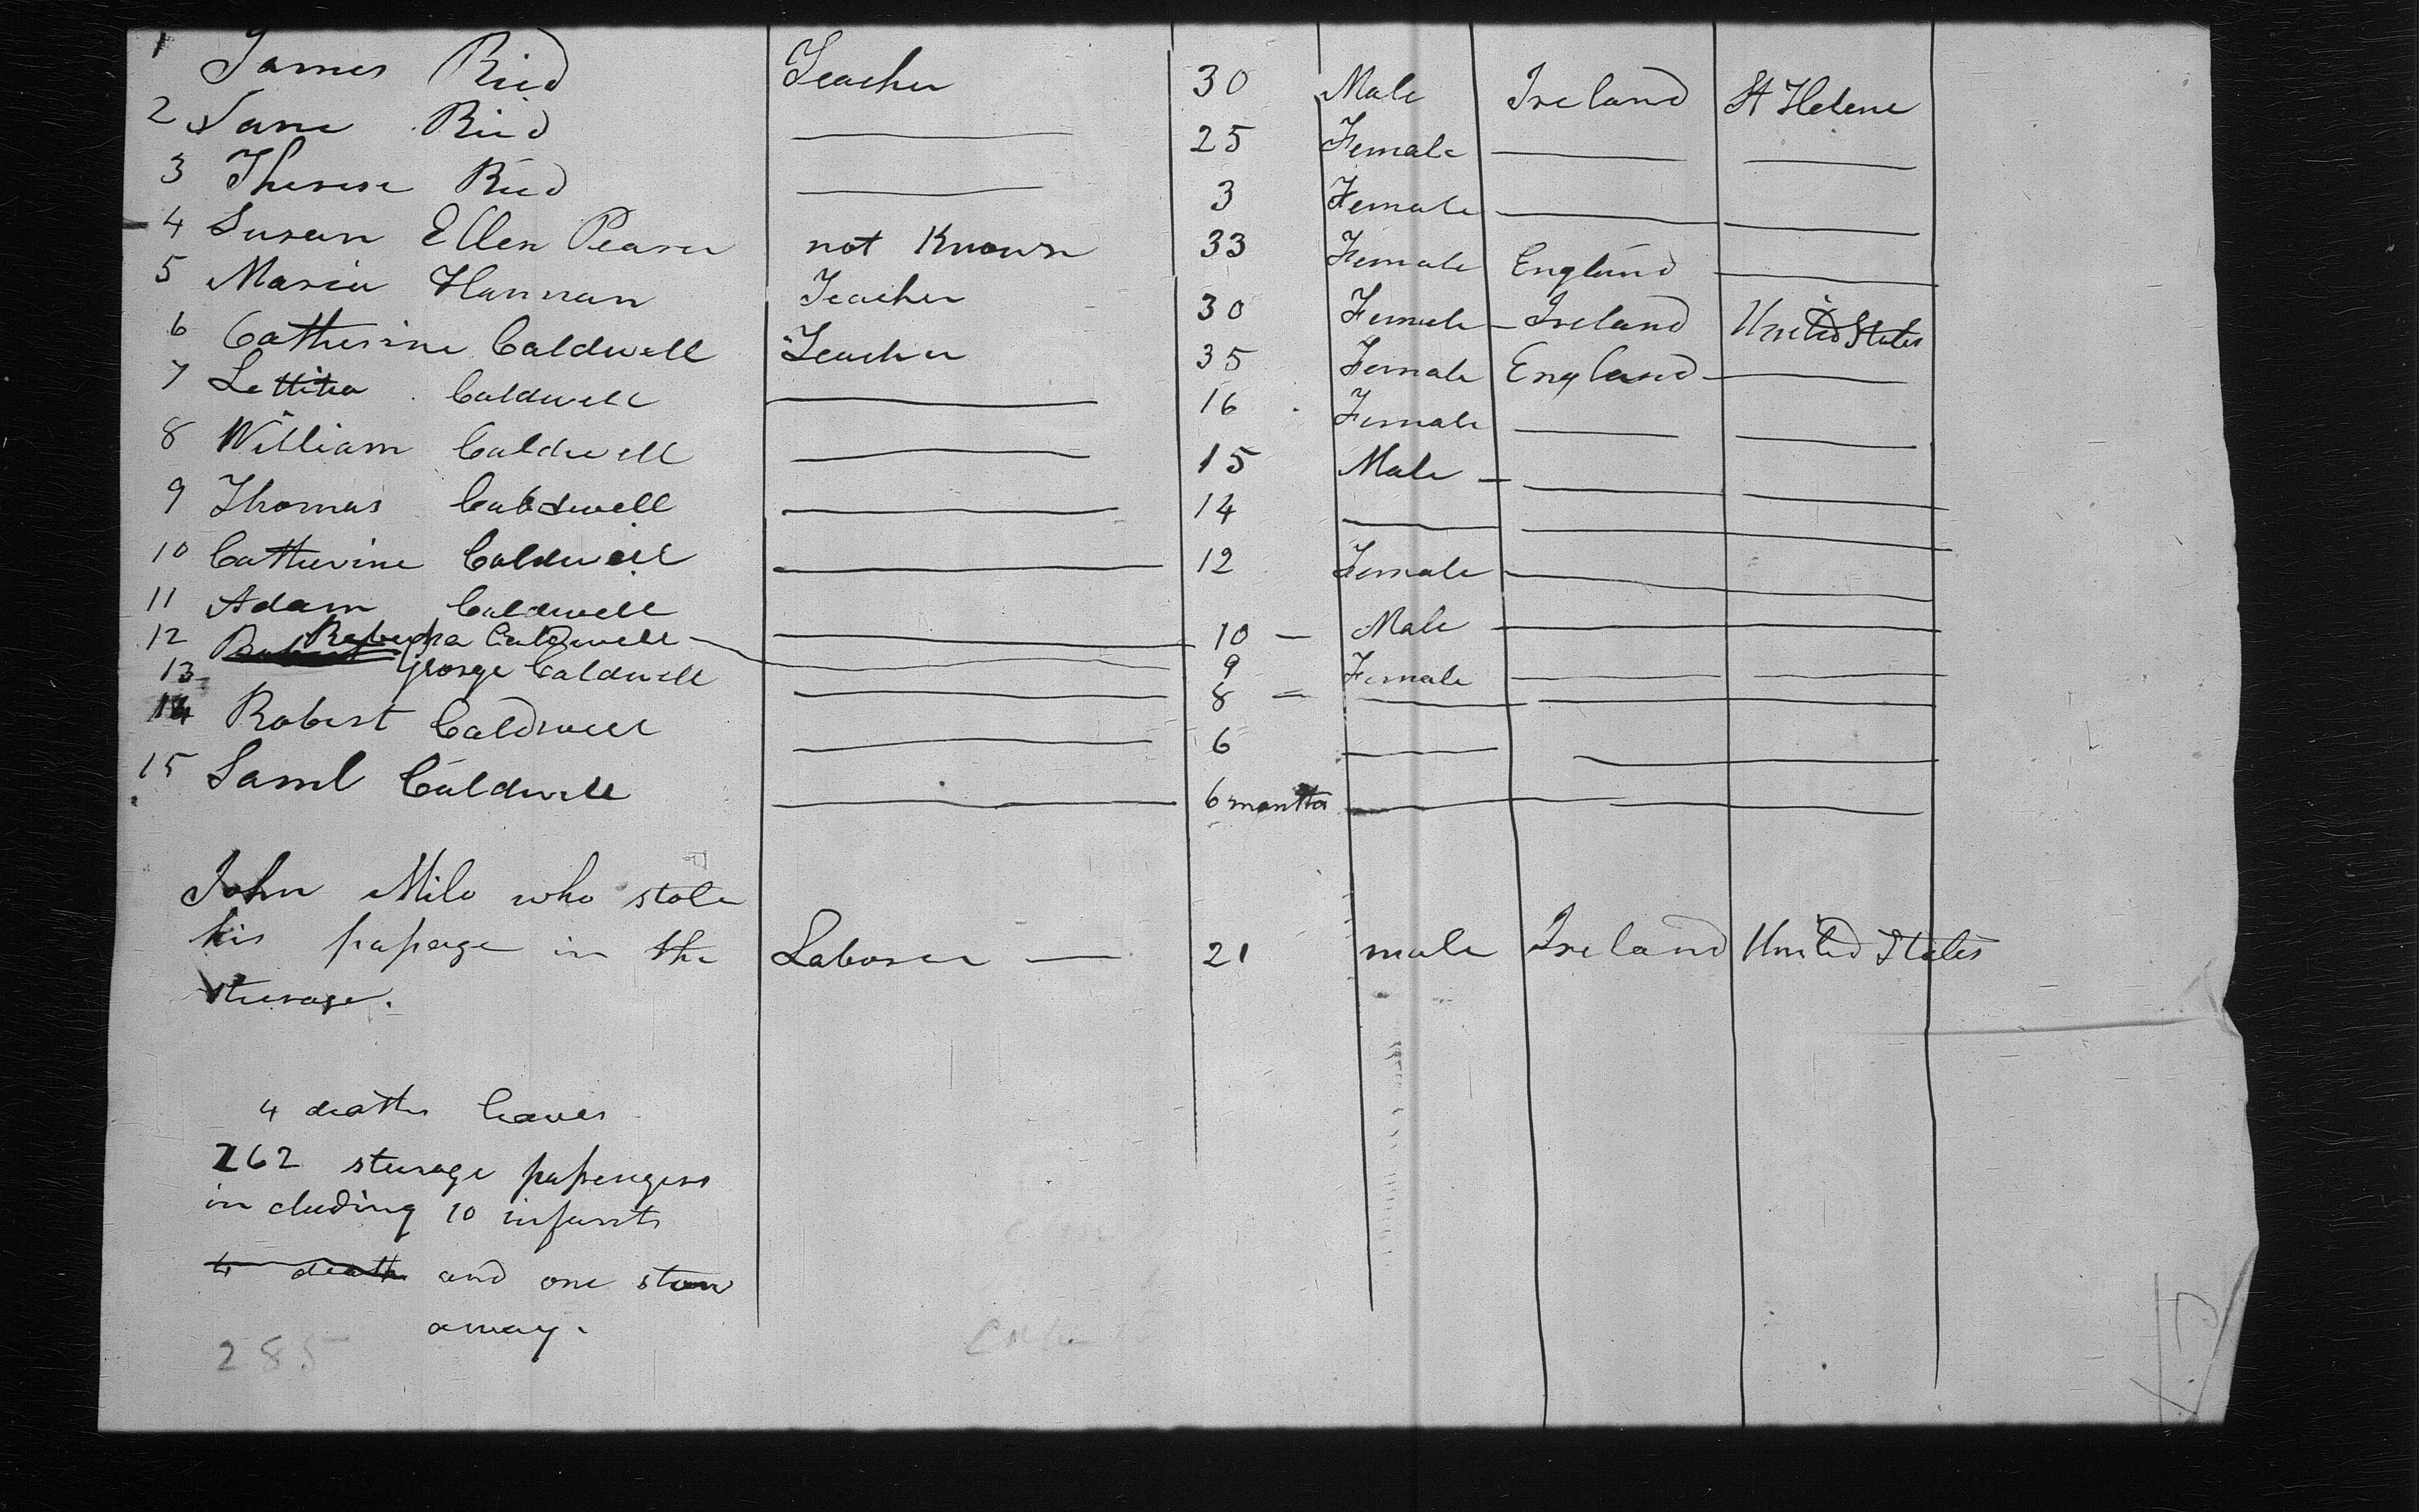 1 James Ried Teacher 30 Male Ireland St Helene
2 Jane Ried 25 Female
3 Therese Ried 3 Female
4 Susan Ellen Pearse not Known 33 Female England
5 Maria Hannan Teacher 30 Female Ireland United States
6 Catherine Caldwell Teacher 35 Female England
7 Lettitia Caldwell 16 Female
8 William Caldwell 15 Male
9 Thomas Caldwell 14
10 Catherine Caldwell 12 Female
11 Adam Caldwell 10 Male
12 Robert Rebecka Caldwell 9 Female
13 George Caldwell 8
14 Robert Caldwell 6
15 Saml Caldwell 6 months
John Milo who stole
his passage in the Laborer 21 male Ireland United States
steerage.
4 deaths leaves
262 steerage passengers
including 10 infants
4 death and one stow
away.
285